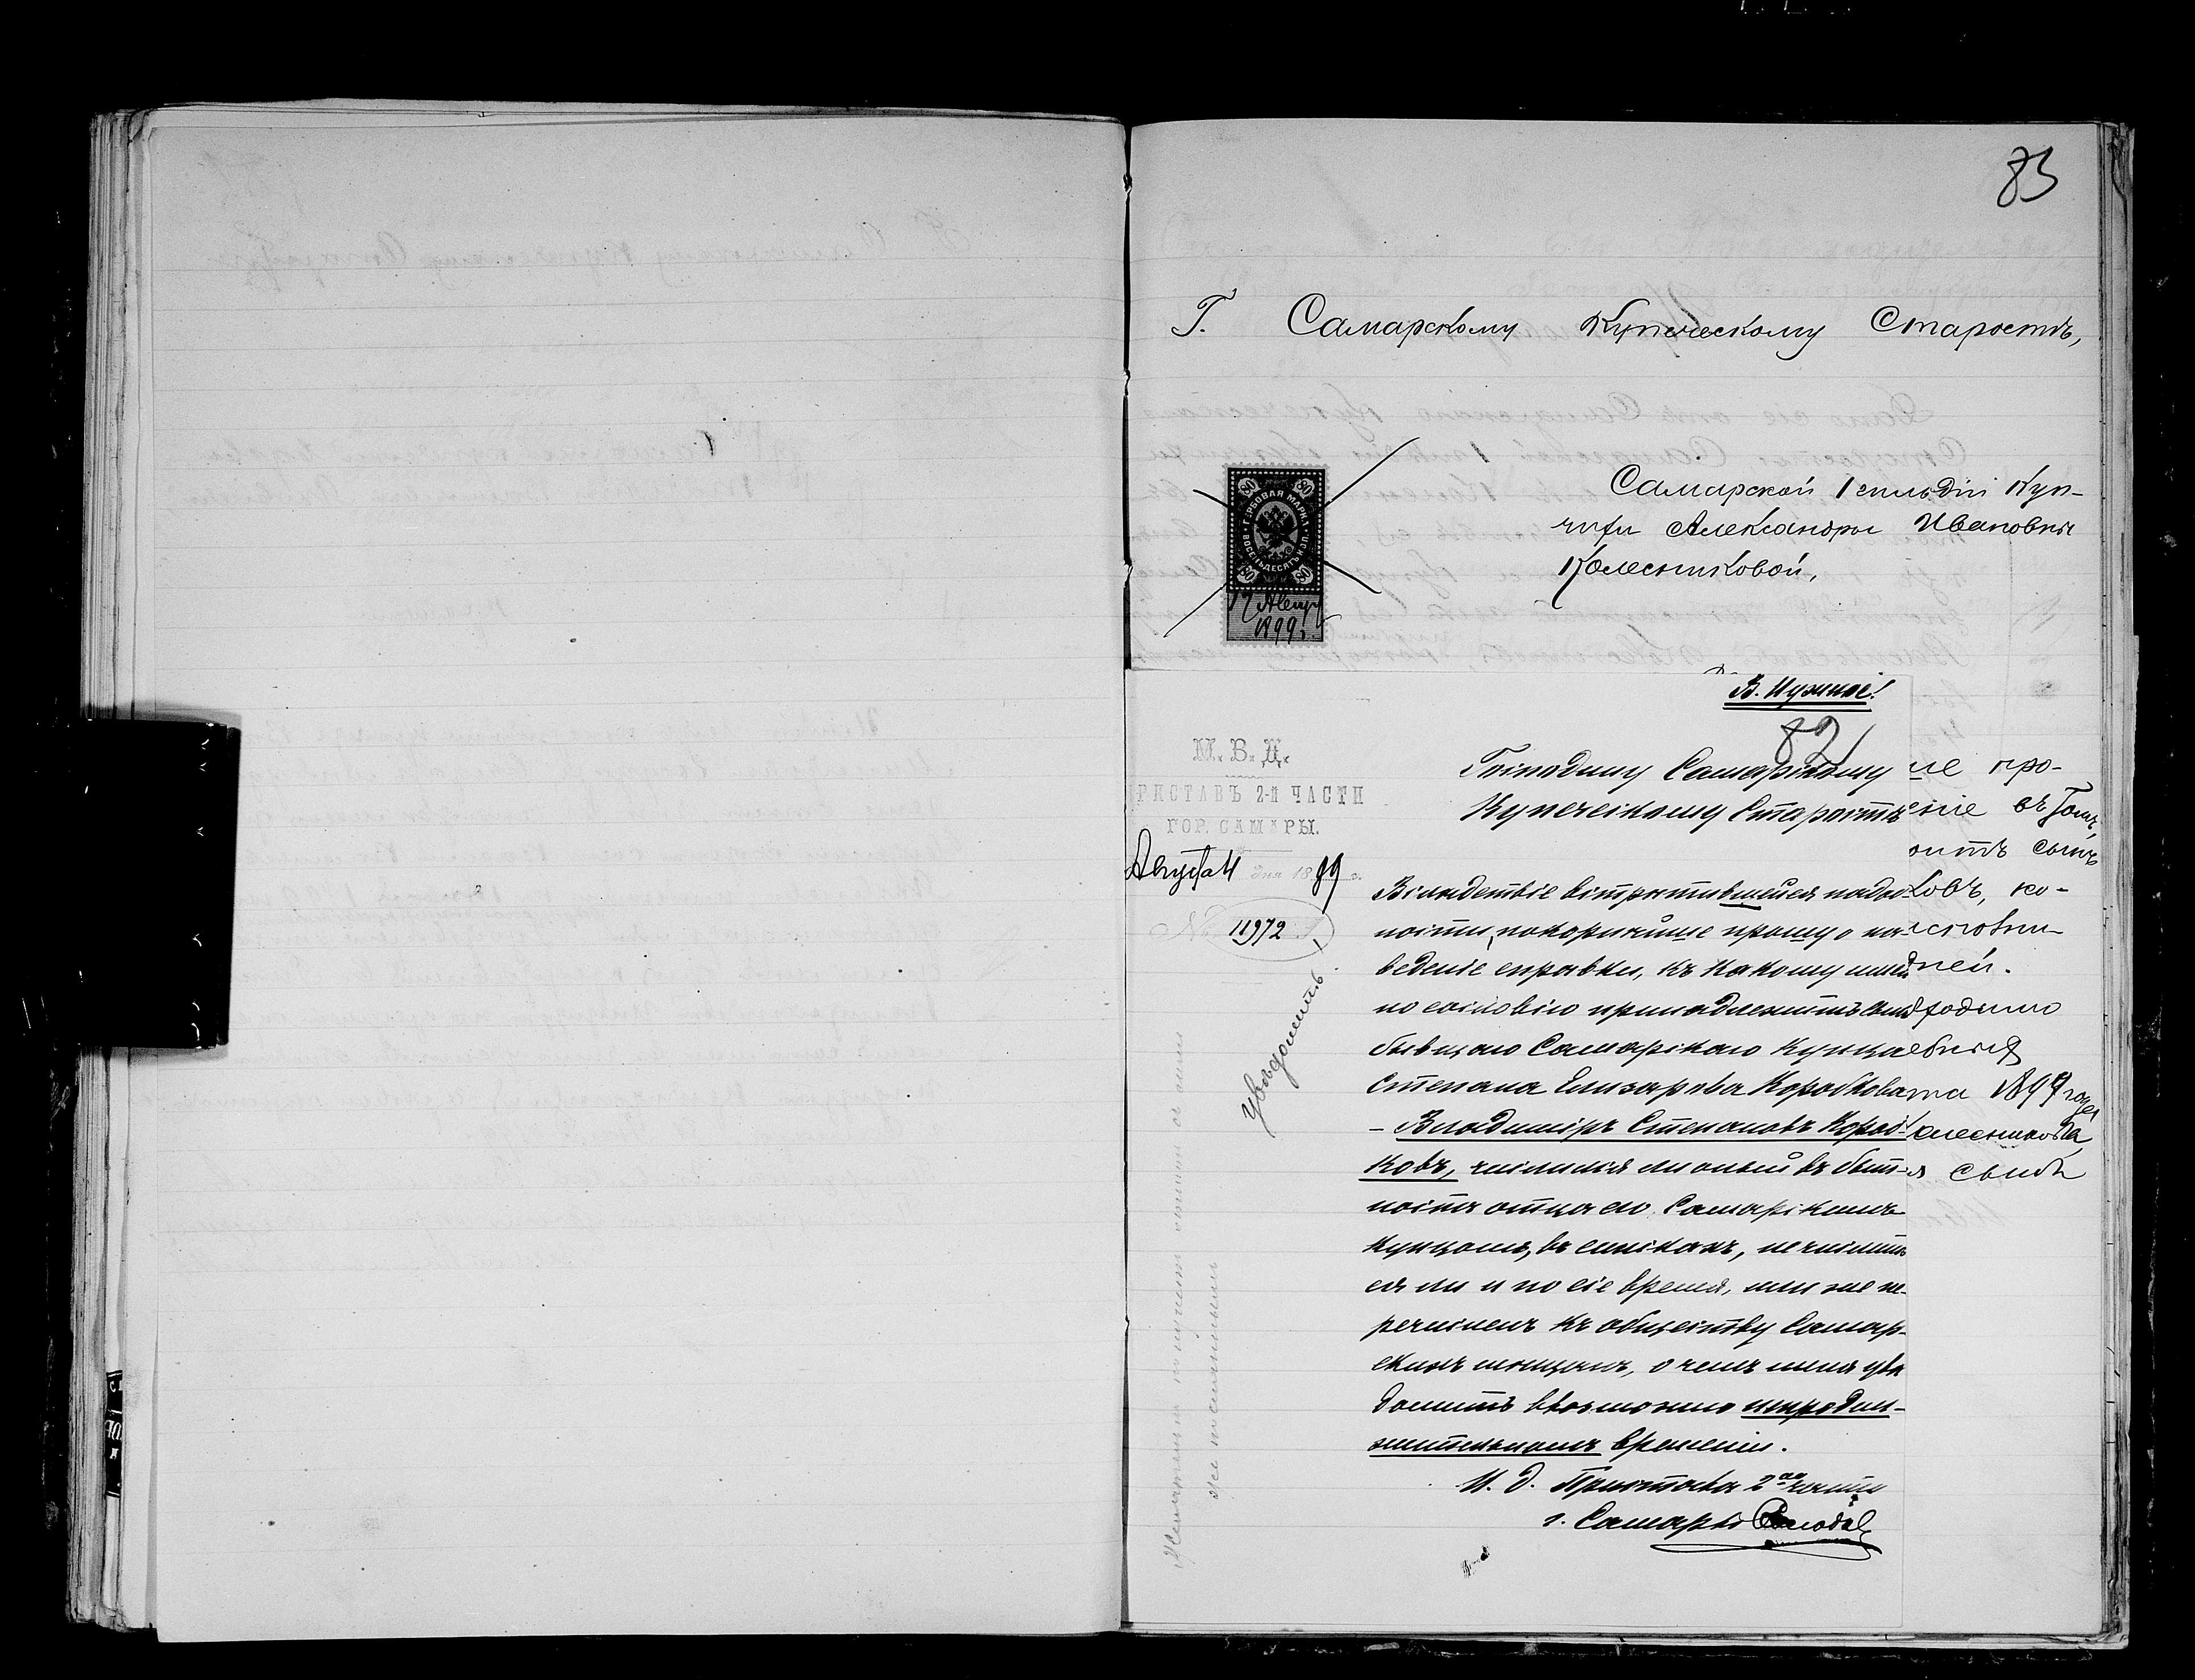 83
Г. Самарскому Купеческому Старостѣ,
Самарской 1 гильдіи Куп-
чихи Александры Ивановны
Колесниковой,
80 80
ГЕРБОВАЯ МАРКА
ВОСЕМЬДЕСЯТЪ КОП.
80 80
17 Август
1899 г.
В. Нужное!
82
М. В. Д.
ПРИСТАВЪ 2-й ЧАСТИ
ГОР. САМАРЫ.
Августа 11 дня 1899 г.
№ 11972
увѣдомить
Господину Самарскому
Купеческому Старостѣ
Вслѣдствіе встрѣтившейся надоб-
ности, покорнѣйше прошу о на-
веденіе справки, къ какому имен
но сословію принадлежитъ сынъ
бывшаго Самарскаго купца
Степана Елизарова Коробкова
- Владиміръ Степановъ Короб-
ковъ, числился ли онъ въ быт-
ность отца его Самарскимъ
купцомъ, въ спискахъ, не числит
ся ли и по сіе время, или же пе-
речисленъ къ обществу Самар-
скихъ мѣщанъ, о чемъ меня увѣ
домить въ возможно непродол-
жительномъ времени.
И. д. Пристава 2ой части
г. Самары
ше про-
еніе въ Томъ,
оитъ сынъ
ковъ, ко-
ней.
ходимо
та 1897 года
олесникова,
я сынъ